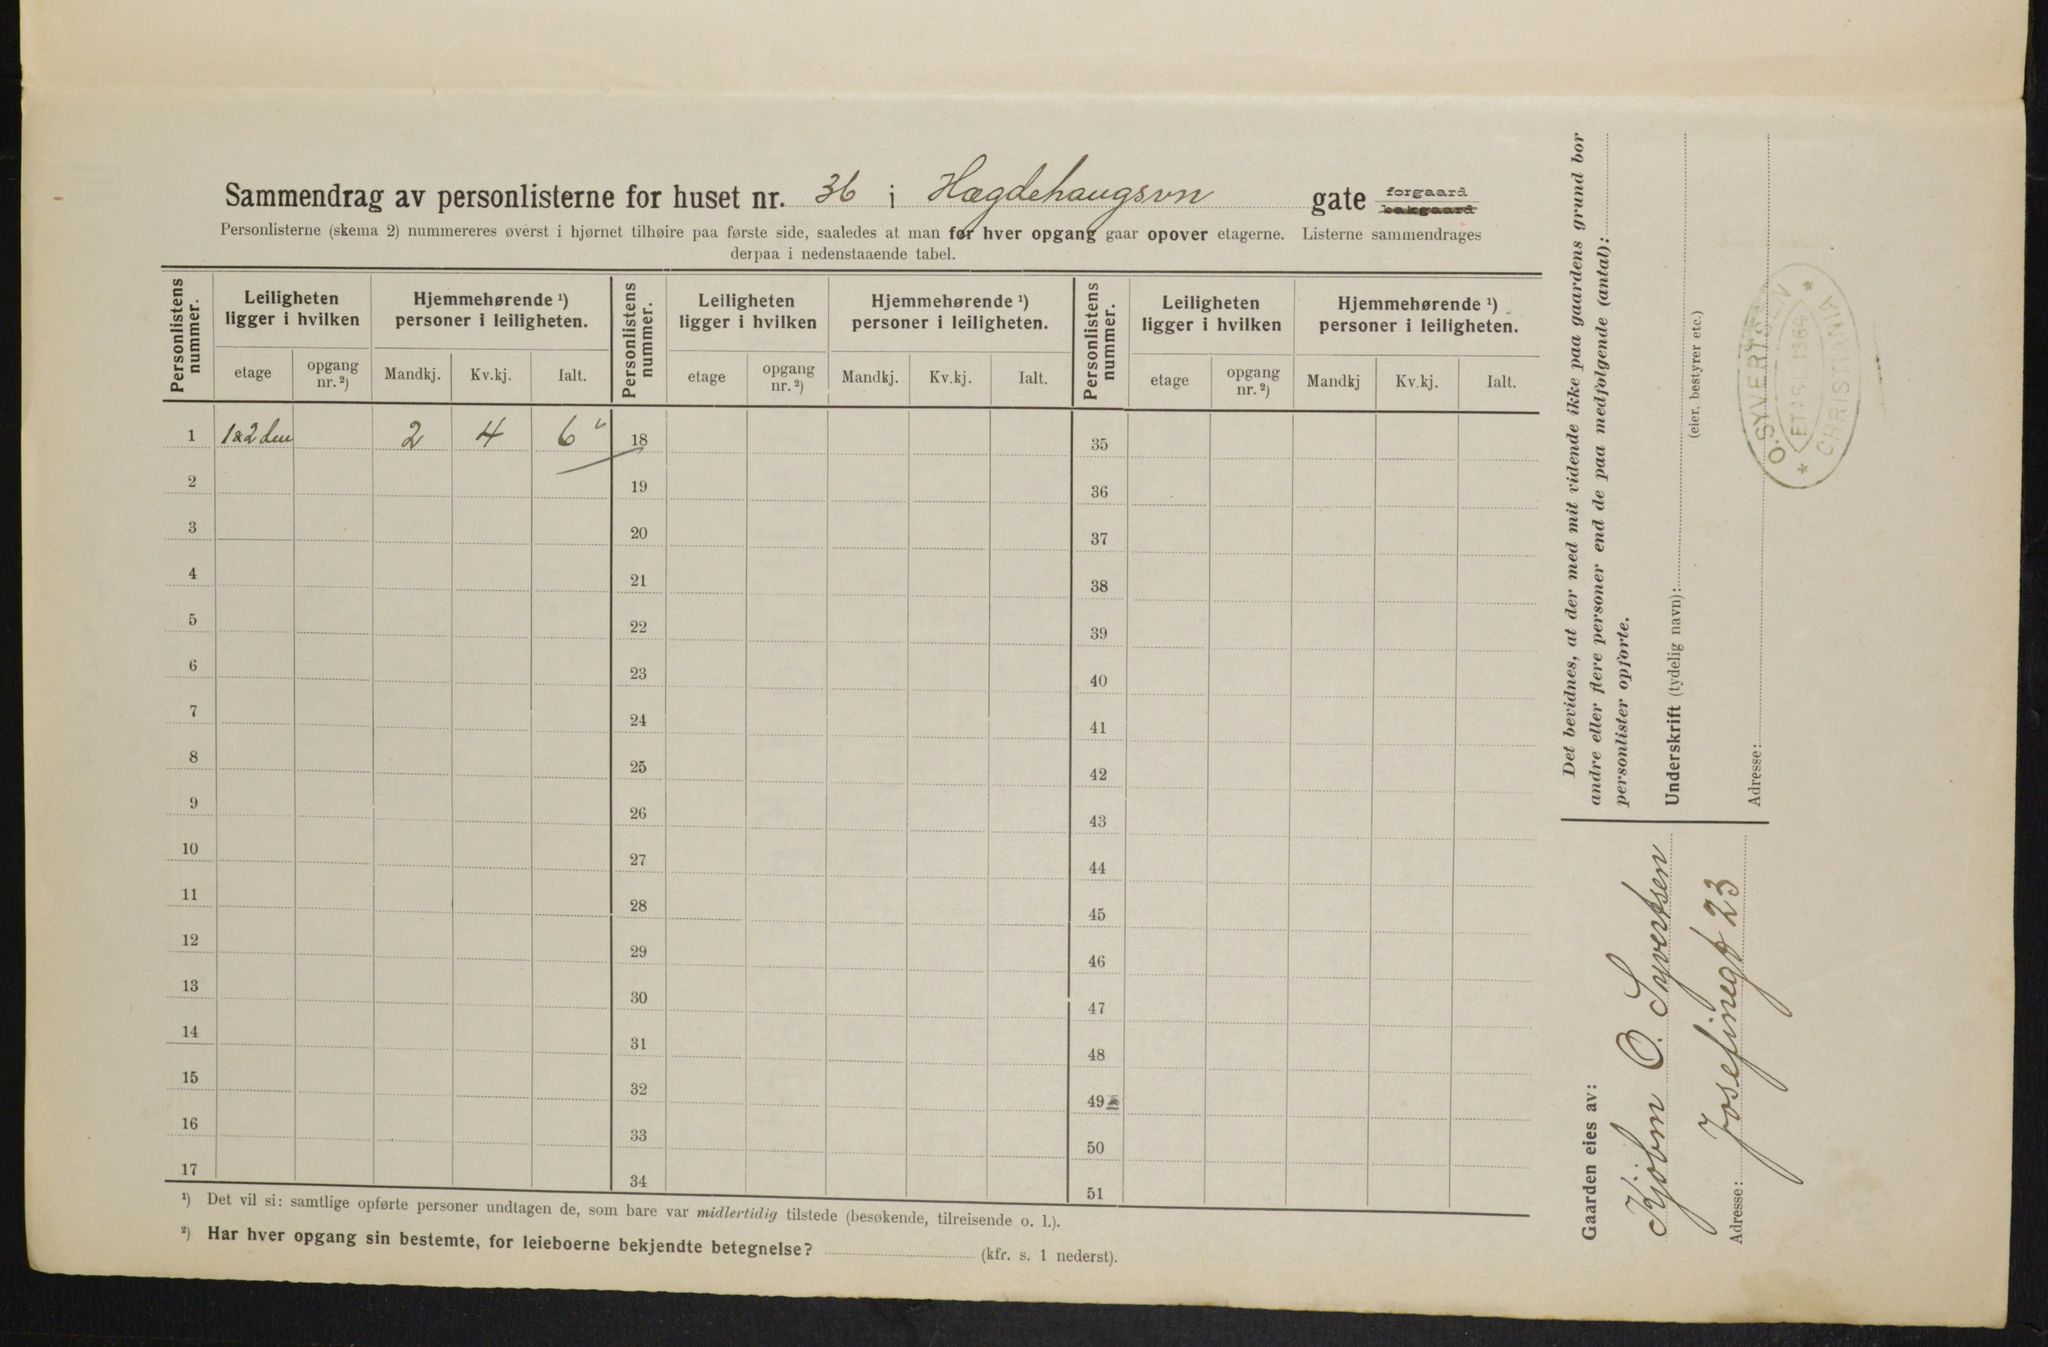 Sammendrag av personlisterne for huset nr. 36 i Hægdehaugsvn gate forgaard bakgaard
Personlisterne (skema 2) nummereres øverst i hjørnet tilhøire paa første side, saaledes at man for hver opgang gaar opover etagerne. Listerne sammendrages
derpaa i nedenstaaende tabel.
Personlistens nummer. Leiligheten ligger i hvilken Hjemmehørende ¹) personer i leiligheten. Personlistens nummer. Leiligheten ligger i hvilken Hjemmehørende ¹) personer i leiligheten. Personlistens nummer. Leiligheten ligger i hvilken Hjemmehørende ¹) personer i leiligheten.
etage opgang nr. ²) Mandkj. Kv.kj. Ialt. etage opgang nr. ²) Mandkj. Kv.kj. Ialt. etage opgang nr. ²) Mandkj Kv.kj. Ialt.
1 1&2den 2 4 6 18 35
2 19 36
3 20 37
4 21 38
5 22 39
6 23 40
7 24 41
8 25 42
9 26 43
10 27 44
11 28 45
12 29 46
13 30 47
14 31 48
15 32 49
16 33 50
17 34 51
¹) Det vil si: samtlige opførte personer undtagen de, som bare var midlertidig tilstede (besøkende, tilreisende o. l.).
²) Har hver opgang sin bestemte, for leieboerne bekjendte betegnelse? (kfr. s. 1 nederst).
Det bevidnes, at der med mit vidende ikke paa gaardens grund bor
andre eller flere personer end de paa medfølgende (antal):
personlister opførte.
Underskrift (tydelig navn):
(eier, bestyrer etc.)
Adresse:
O. SYVERTSEN
ETABL. 1864
CHRISTIANIA
Gaarden eies av:
Kjøbm O. Syvertsen
Adresse: Josefinegt 23